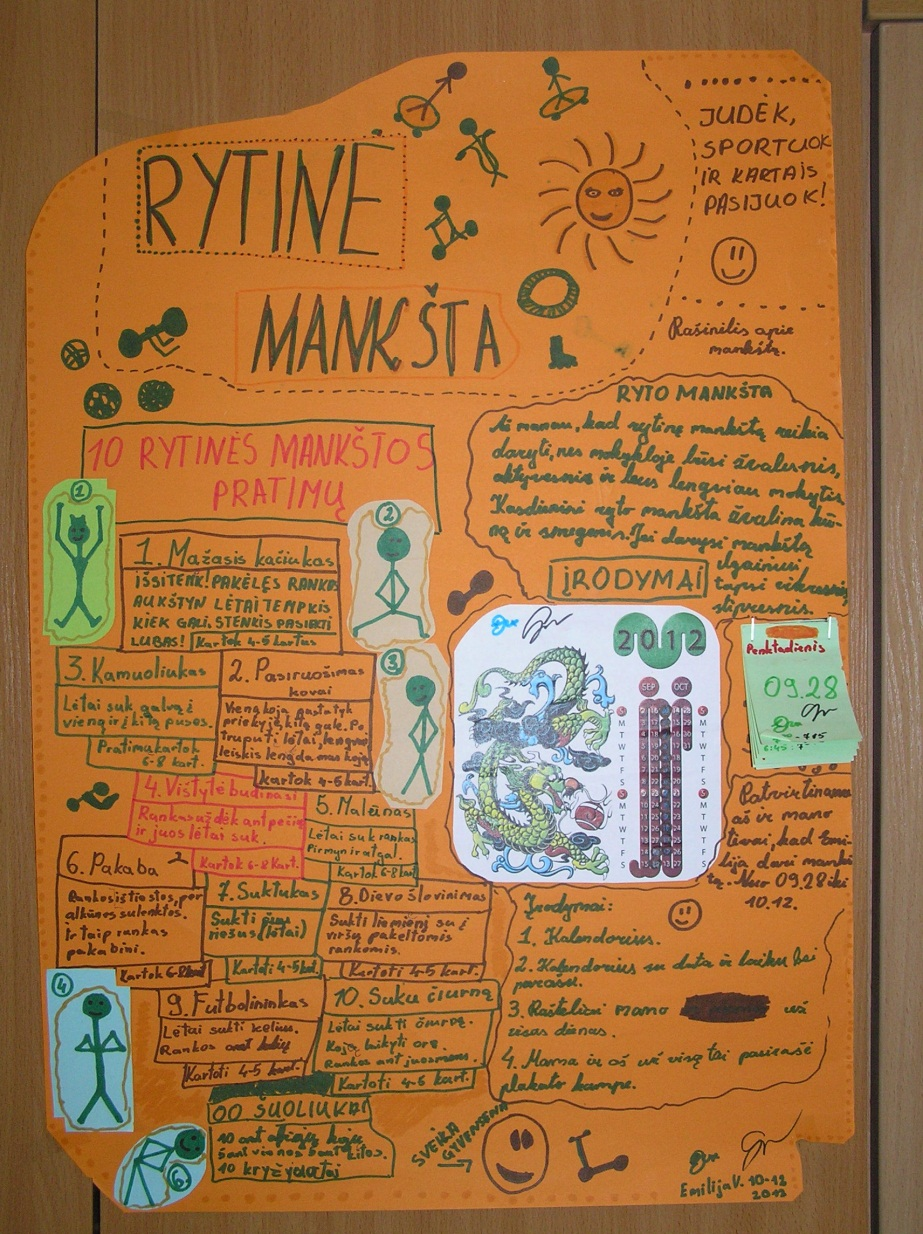 RYTINĖ
MANKŠTA
JUDĖK,
SPORTUOK
IR KARTAIS
PASIJUOK!
Rašinėlis apie
mankštą.
RYTO MANKŠTA
Aš manau, kad rytinę mankštą reikia
daryti, nes mokykloje būsi žvalesnis,
aktyvesnis ir bus lengviau mokytis.
Kasdienini ryto mankšta žvalina kū-
ną ir smegenis. Jei darysi mankštą
ilgainiui,
tapsi
stipresnis.
10 RYTINĖS MANKŠTOS
PRATIMŲ
1
1. Mažasis kačiukas
IŠSITEMK! PAKĖLĘS RANKAS
AUKŠTYN LĖTAI TEMPKIS
KIEK GALI. STENKIS PASIEKTI
LUBAS!
Kartok 4-5 kartus
2
3. Kamuoliukas
Lėtai suk galvą į
vieną ir į kitą pusę.
Pratimą kartok
6-8 kart.
2. Pasiruošimas
kovai
Vieną koją pastatyk
priekyje, kitą gale. Po
truputį lėtai, lengvai
leiskis lengdamas koją
Kartok 4-6 kart.
3
4. Vištytė budinasi
Rankas uždėk ant pečių
ir juos lėtai suk.
Kartok 6-8 Kart.
5. Malūnas
Lėtai suk rankas
Pirmyn ir atgal.
Kartok 6-8 kart
6. Pakaba
Rankos ištiestos, per
alkūnes sulenktos.
Ir taip rankas
pakabini.
Kartok 6-8 kart
7. Suktukas
Sukti
riešus (lėtai)
Kartoti 4-5 kat.
8. Dievo šlovinimas
Sukti liemenį su į
viršų pakeltomis
rankomis.
Kartoti 4-5 kart.
4
9. Futbolininkas
Lėtai sukti kelius.
Rankos ant kelių
Kartoti 4-5 kart.
10. Suku čiurną
Lėtai sukti čiurną.
Koją laikyti ore.
Rankos ant juosmens.
Kartoti 4-6 kart.
OO ŠUOLIUKAI
10 ant abiejų kojų
5 ant vienos 5 ant kitos.
10 kryžydatai
6.
SVEIKA
GYVENSENA
ĮRODYMAI
2012
SEP OCT
S
M
T
W
T
F
S
S
M
T
W
T
F
S
Penktadienis
09.28
Patvirtiname
aš ir mano
tėvai, kad Emi-
lija darė mankš-
tą. Nuo 09.28 iki
10.12.
Įrodymai:
1. Kalendorius.
2. Kalendorius su data ir laiku bei
parašu.
3. Rašteliai mano už
visas dienas.
4. Mama ir aš už visą tai pasirašė
plakato kampe.
Emilija V. 10-12
2012